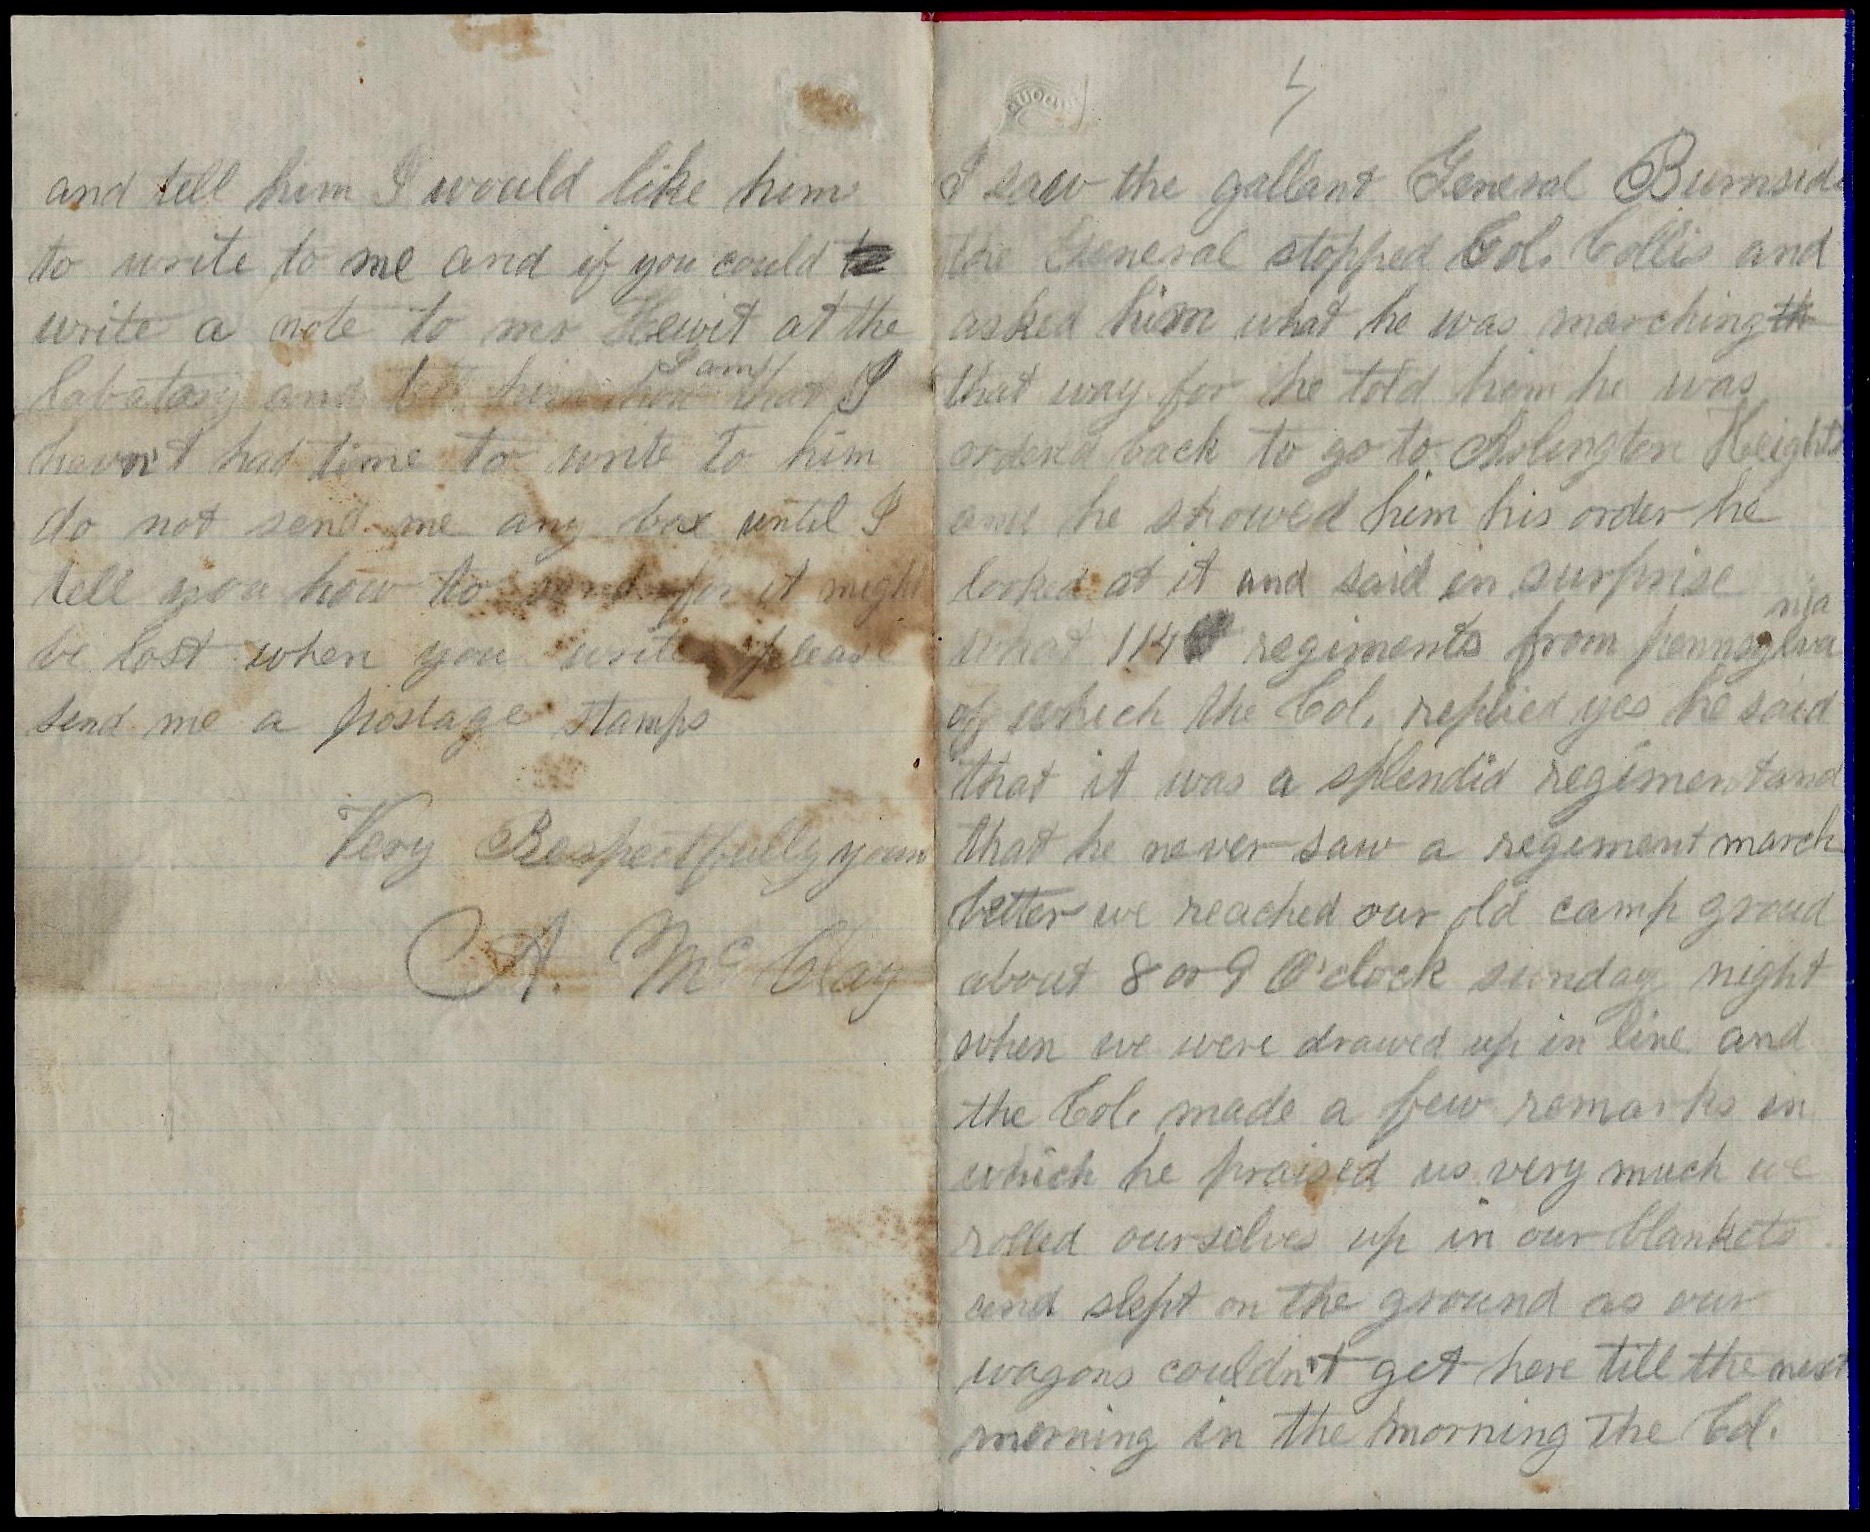 and tell him I would like him
to write to me and if you could to
write a note to mr Hewit at the
labatory and tell him how I am that I
havn't had time to write to him
do not send me any box until I
tell you how to send for it might
be lost when you write please
send me a postage stamps
Very Respectfully yours
A. Mc Clay
4
I saw the gallant General Burnside
the General stopped Col. Collis and
asked him what he was marching th
that way for he told him he was
ordered back to go to Arlington Heights
and he showed him his order he
looked at it and said in surprise
what 114 regiments from pennsylvania
of which the Col. replied yes he said
that it was a splendid regiment and
that he never saw a regiment march
better we reached our old camp groud
about 8 or 9 O'clock sunday night
when we were drawed up in line and
the Col. made a few remarks in
which he praised us very much we
rolled ourselves up in our blankets
and slept on the ground as our
wagons couldn't get here till the next
morning in the morning The Col.